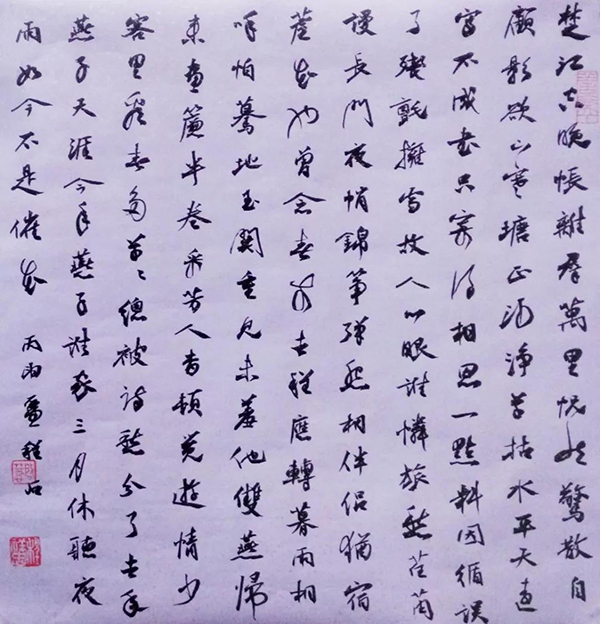 楚江空晚悵離群萬里恍然驚散自
顧影欲下寒塘正沙淨草枯水平天遠
寫不成書只寄得相思一點料因循誤
了殘氈擁雪故人心眼誰憐旅愁荏苒
謾長門夜悄錦箏彈怨想伴侶猶宿
蘆花也曾念春前去程應轉暮雨相
呼怕驀地玉關重見未羞他雙燕歸
來畫簾半卷采芳人杳頓覺遊情少
客里看春多草草總被詩愁分了去年
燕子天涯今年燕子誰家三月休聽夜
雨如今不是催花 丙申夏程石